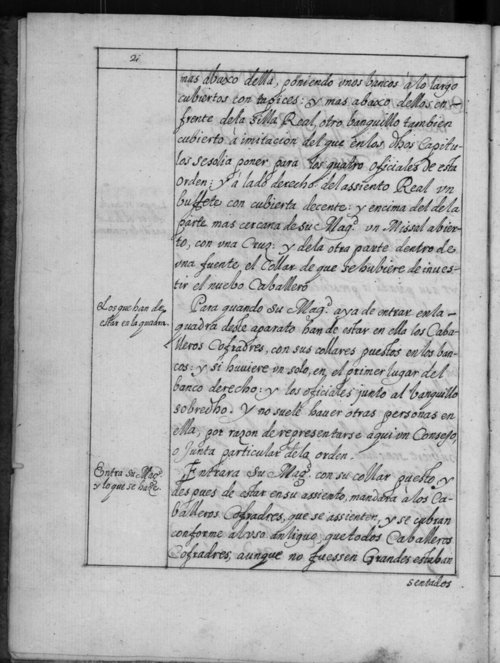 2.
mas abaxo della, poniendo vnos bancos à lo largo
cubiertos con tapices: y mas abaxo dellos, en-
frente de la silla Real, otro banquillo tambien
cubierto à imitacion del que en los dhos Capitu-
los se solia poner para los quatro oficiales de esta
orden; y à lado derecho del assiento Real vn
buffete con cubierta decente; y encima del de la
parte mas cercana de su Magd. vn Missal abier-
to, con vna Cruz: y de la otra parte dentro de
vna fuente, el collar de que se hubiere de inues-
tir el nuebo Caballero
Los que han de
estar en la quadra.
Para quando su Magd. aya de entrar en la
quadra deste aparato han de estar en ella los Caba-
lleros Cofradres, con sus collares puestos en los ban-
cos: y si huuiere vn solo, en el primer lugar del
banco derecho: y los oficiales junto al banquillo
sobredho. y no suele hauer otras personas en
ella, por razon de representarse aqui vn Consejo,
o Junta particular de la orden.
Entra su Magd.
y lo que se haze.
Entrara su Magd. con su collar puesto, y
despues de estar en su assiento, mandara a los Ca-
balleros Cofradres, que se assienten, y se cubran
conforme al vso antiguo, que todos Caballeros
Cofradres, aunque no fuessen Grandes estaban
sentados